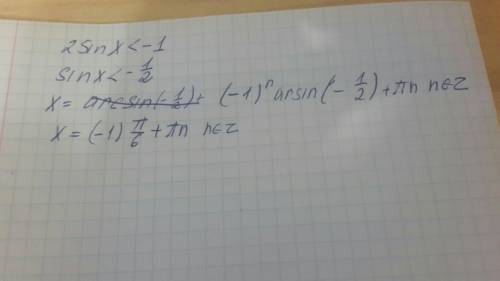 2sinx<-1
sinx<-1/2
x= arcsin(-1/2)+ (-1)^n arsin(-1/2)+πn n∈Z
x=(-1) π/6+πn n∈Z